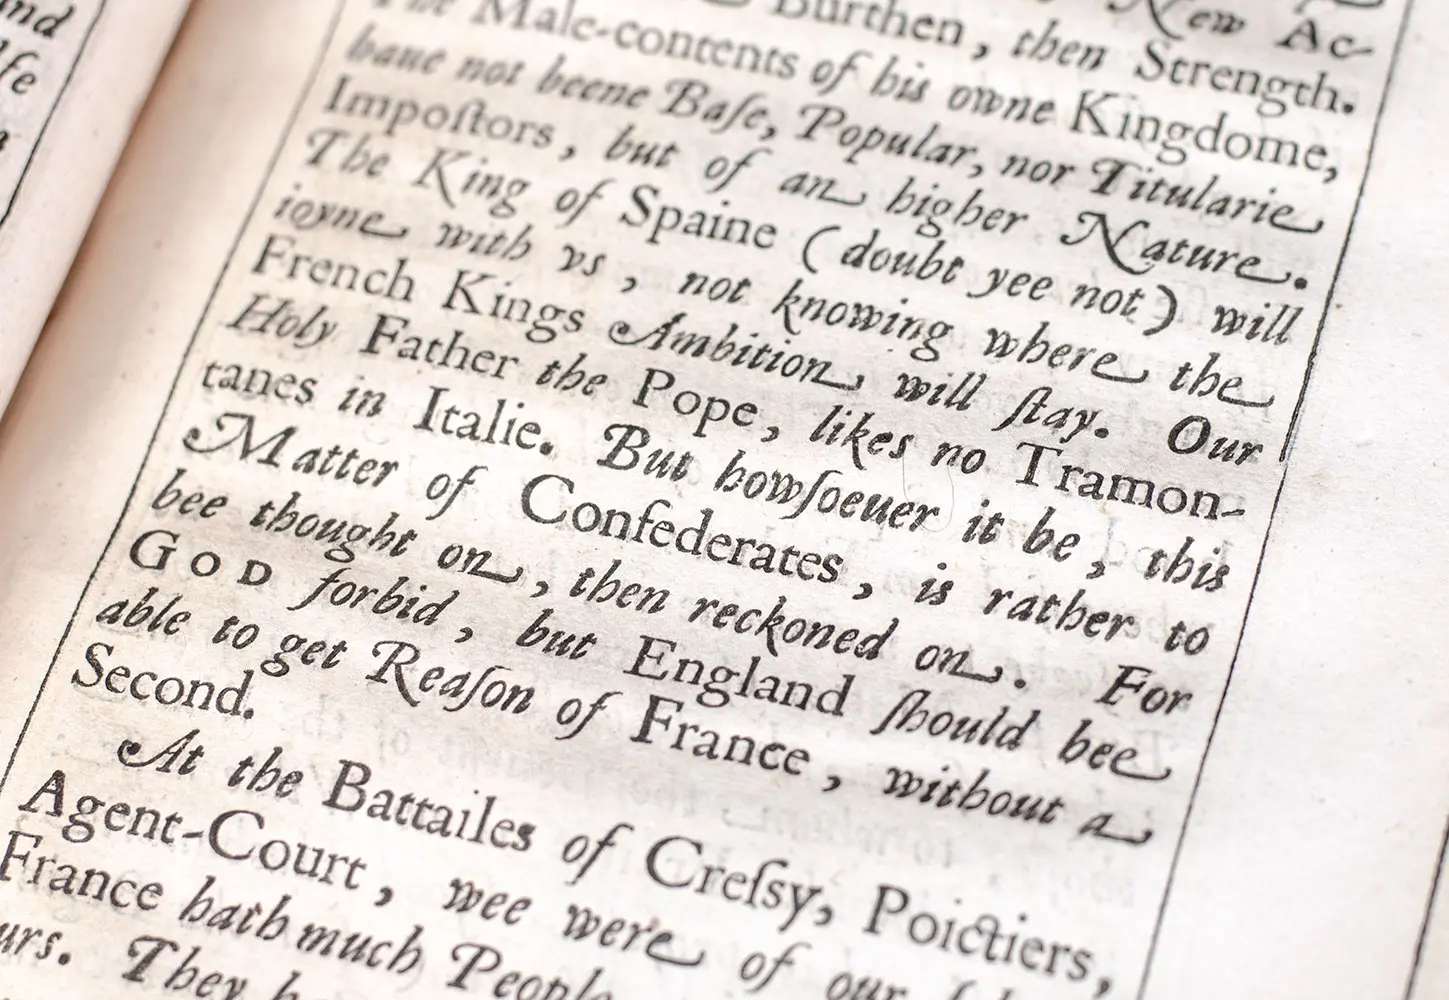 and
fe
New Ac-
Burthen, then Strength.
The Male-contents of his owne Kingdome,
haue not beene Baſe, Popular, nor Titularie
Impoſtors, but of an higher Nature.
The King of Spaine (doubt yee not) will
ioyne with vs, not knowing where the
French Kings Ambition will ſtay. Our
Holy Father the Pope, likes no Tramon-
tanes in Italie. But howſoeuer it be, this
Matter of Confederates, is rather to
bee thought on, then reckoned on. For
GOD forbid, but England ſhould bee
able to get Reaſon of France, without a
Second.
At the Battailes of Creſsy, Poictiers,
Agent-Court, wee were of our
France hath much People
urs. They